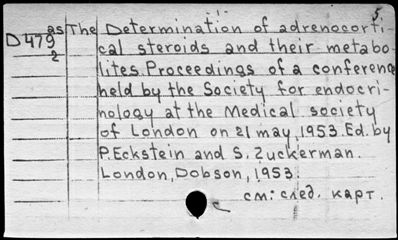 5.
as The Determination of adrenocorti-
D479 cal steroids and their metabo-
2 lites. Proceedings of a conference
held by the Society for endocri-
nology at the Medical society
of London on 21 may, 1953. Ed. by
P. Eckstein and S. Zuckerman.
London, Dobson, 1953.
см: след. карт.